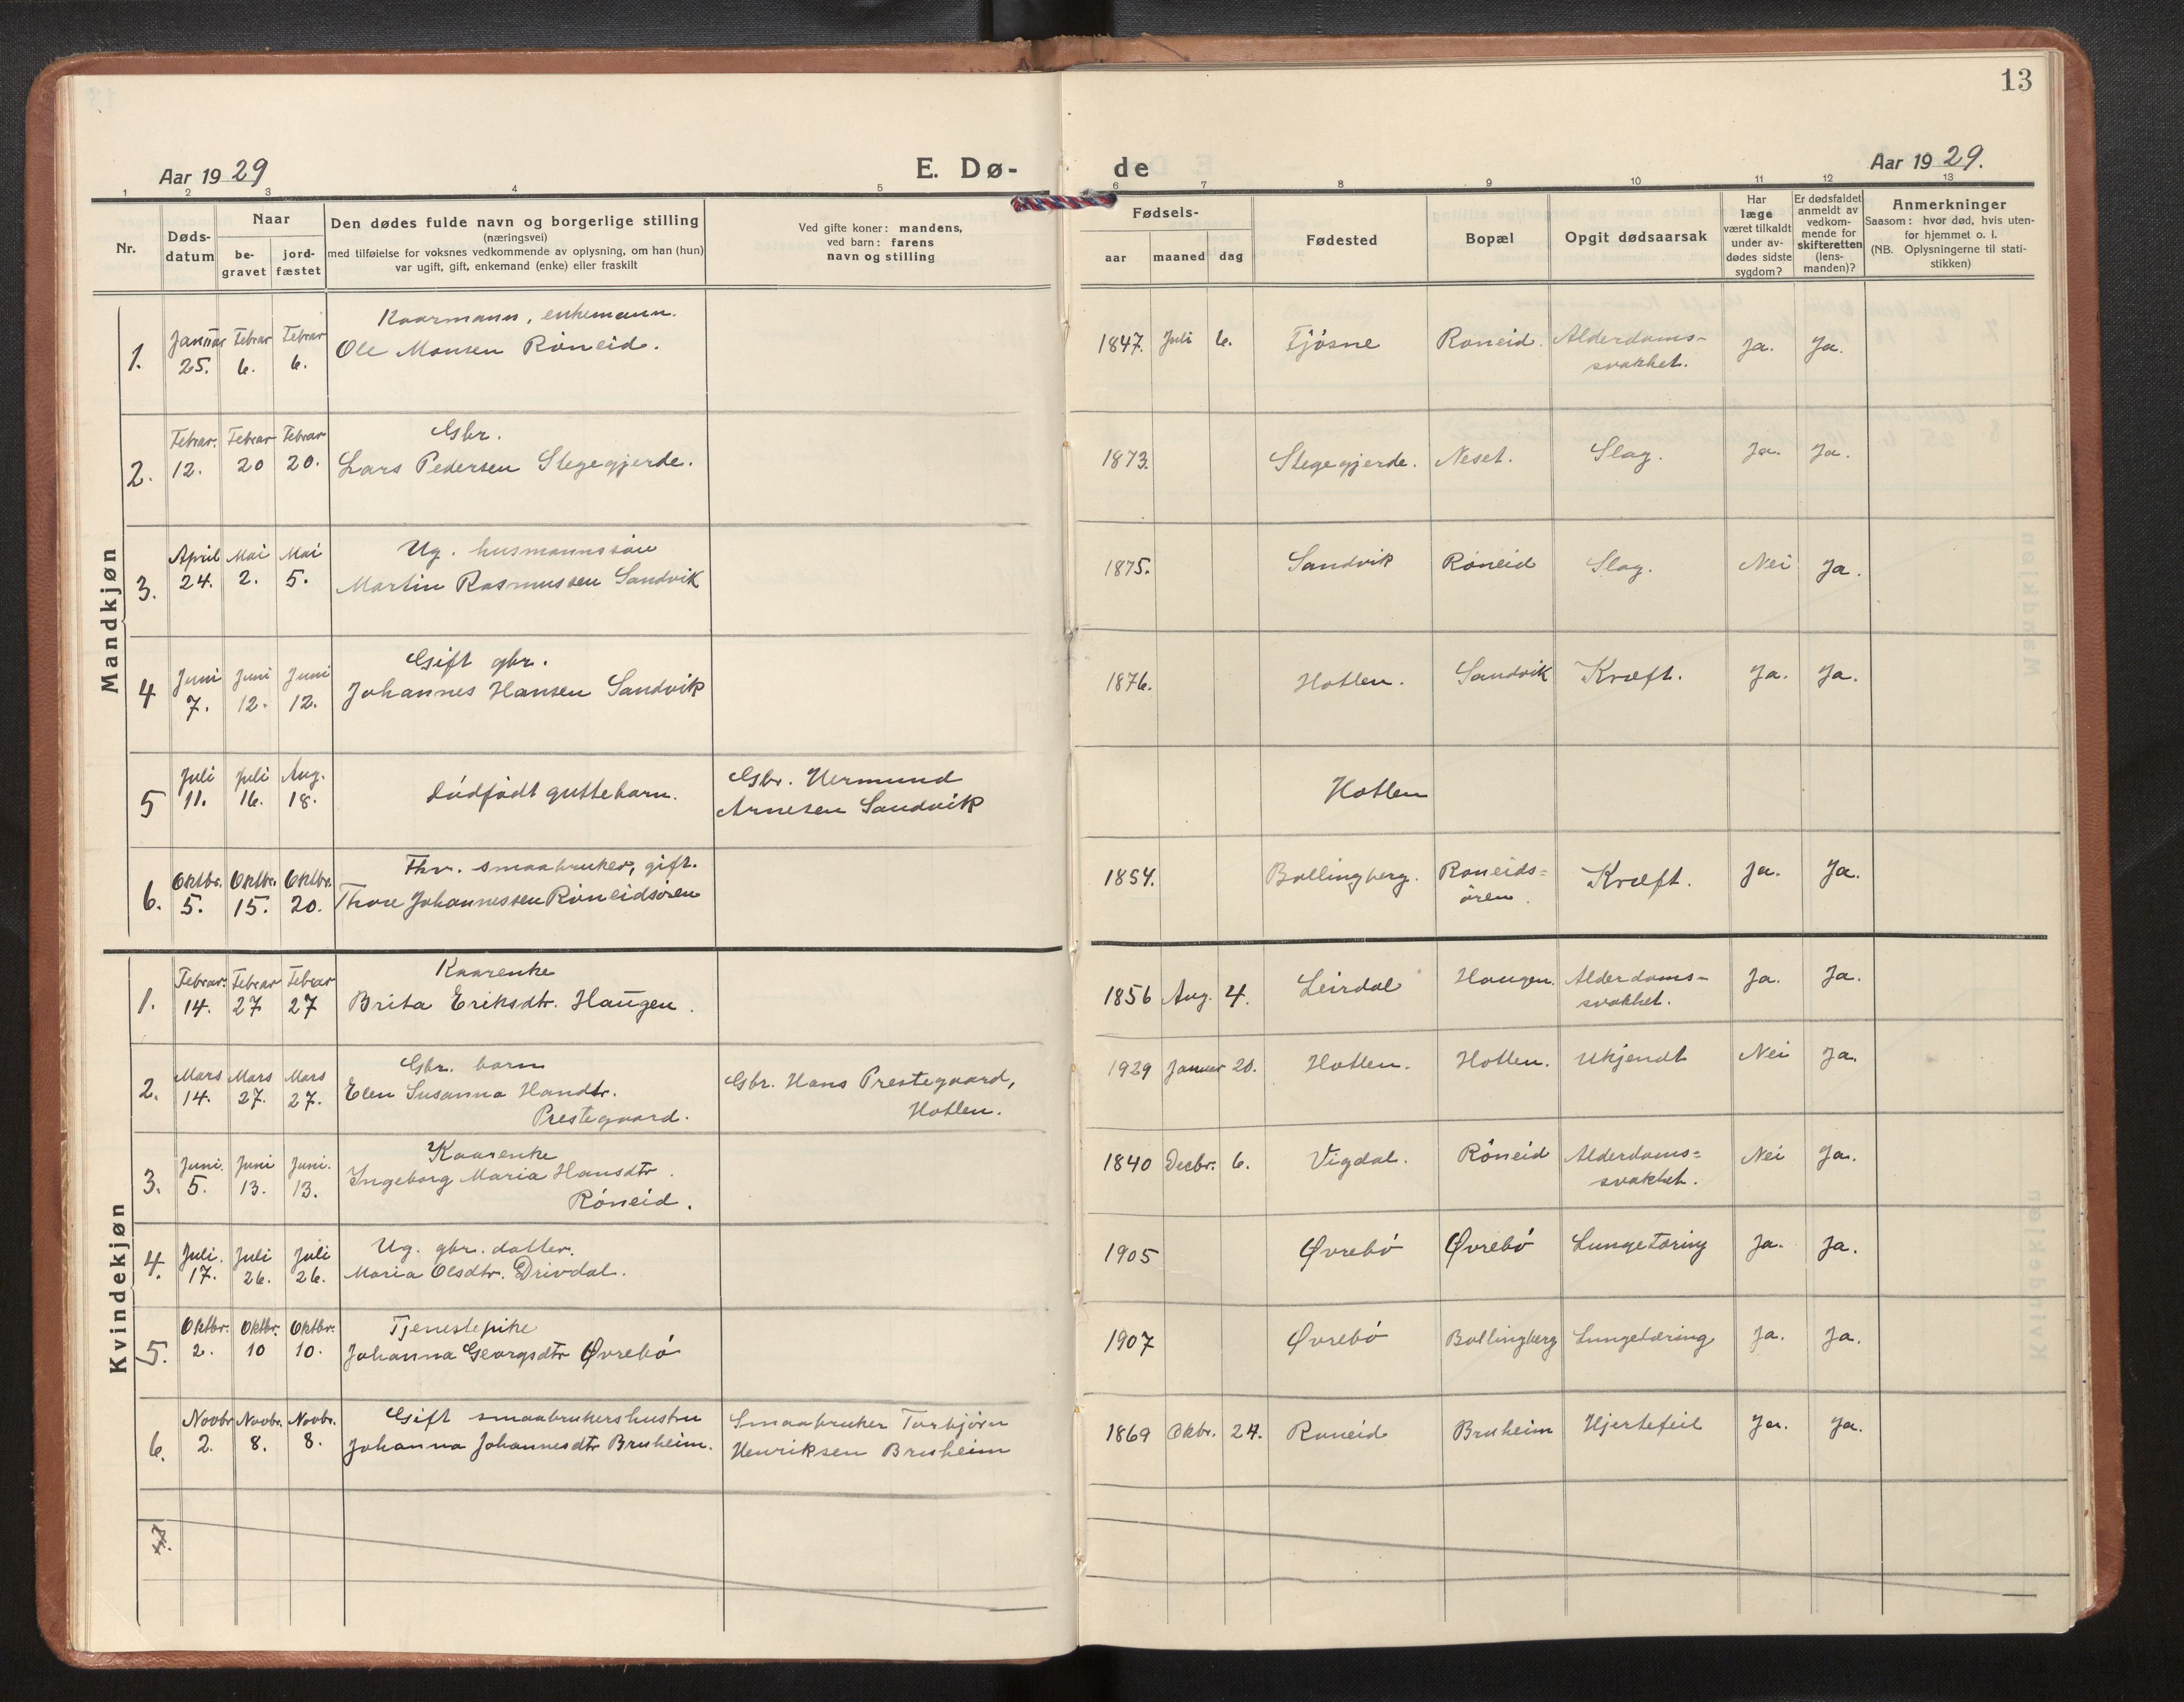 13
Aar 1929
E. Dø-
de
Aar 1929.
1 2 3 4 5 6 7 8 9 10 11 12 13
Nr.
Døds-
datum
Naar
be-
gravet
jord-
fæstet
Den dødes fulde navn og borgerlige stilling
(næringsvei)
med tilføielse for voksnes vedkommende av oplysning, om han (hun)
var ugift, gift, enkemand (enke) eller fraskilt
Ved gifte koner: mandens,
ved barn: farens
navn og stilling
Fødsels-
aar maaned dag
Fødested
Bopæl
Opgit dødsaarsak
Har
læge
været tilkaldt
under av-
dødes sidste
sygdom?
Er dødsfaldet
anmeldt av
vedkom-
mende for
skifteretten
(lens-
manden)?
Anmerkninger
Saasom: hvor død, hvis uten-
for hjemmet o. l.
(NB. Oplysningerne til stati-
stikken)
Mandkjøn
Kaarmann, enkemann.
1. Januar 25. Febrar 6. Febrar 6. Ole Monsen Røneid. 1847. Juli 6. Fjøsne Røneid. Alderdoms-
svakhet. Ja. Ja.
Gbr.
2. Febrar. 12. Febrar 20 Febrar 20. Lars Pedersen Stegegjerde. 1873. Stegegjerde. Neset. Slag. Ja. Ja.
Ug. husmannssøn
3. April 24. Mai 2. Mai 5. Martin Rasmussen Sandvik 1875. Sandvik Røneid Slag. Nei Ja.
Gift gbr.
4 Juni 7. Juni 12. Juni 12. Johannes Hansen Sandvik 1876. Hotlen. Sandvik Kræft. Ja. Ja.
5 Juli 11. Juli 16. Aug. 18. Dødfødt guttebarn. Gbr. Nermund
Arnesen Sandvik Hotlen
Fhv. smaabruker, gift.
6. Oktbr. 5. Oktbr. 15. Oktbr. 20. Thore Johannessen Røneidsøren 1854. Bollingberg. Røneids=
øren. Kræft. Ja. Ja.
Kvindekjøn
Kaarenke
1. Febrar. 14. Febrar 27 Febrar 27 Brita Eriksdtr. Haugen. 1856 Aug. 4. Leirdal Haugen. Alderdoms-
svakhet. Ja. Ja.
Gbr. barn
2. Mars 14. Mars 27. Mars 27. Elen Susanna Handtr.
Prestegaard. Gbr. Hans Prestegaard,
Hotlen. 1929 Januar 20. Hotlen. Hotlen. Ukjendt Nei Ja.
Kaarenke
3. Juni. 5. Juni 13. Juni. 13. Ingeborg Maria Hansdtr.
Røneid. 1840 Decbr. 6. Vigdal. Røneid Alderdoms=
svakhet. Nei Ja.
Ug. gbr. datter.
4. Juli. 17. Juli 26. Juli 26. Maria Olsdtr. Drivdal. 1905 Øvrebø Øvrebø Lungetæring Ja. Ja.
Tjenestepike
5. Oktbr. 2. Oktbr. 10 Oktbr. 10. Johanna Georgsdtr Øvrebø 1907 Øvrebø Bollingberg Lungetæring Ja. Ja.
Gift smaabrukershustru
6. Novbr 2. Novbr. 8. Novbr. 8. Johanna Johannesdtr Bruheim. Smaabruker Torbjørn
Henriksen Bruheim 1869 Okbr. 24. Røneid Bruheim Hjertefeil Ja. Ja.